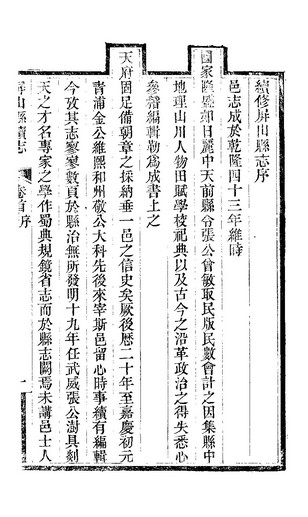 續修屏山縣志序
邑志成於乾隆四十三年維時
國家隆盛如日麗中天前縣令張公曾敏取民版民數會計之因集縣中
地理山川人物田賦學校祀典以及古今之沿革政治之得失悉心
參稽編輯勒爲成書上之
天府固足備朝章之採納垂一邑之信史矣厥後歷二十年至嘉慶初元
青浦金公維熙和州敬公大科先後來宰斯邑留心時事續有編輯
今攷其志寥寥數頁於縣治無所發明十九年任武威張公澍具刻
天之才名專家之學作蜀典規鏡省志而於縣志闕焉未講邑士人
屏山縣續志
卷首 序
一